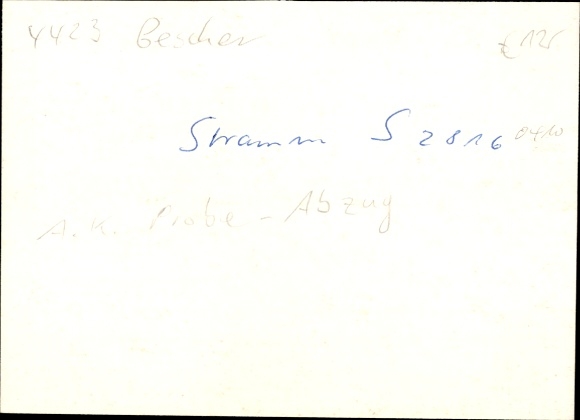 4423 Gescher € 12,-
Stramm S 2816 0410
A.K. Probe - Abzug